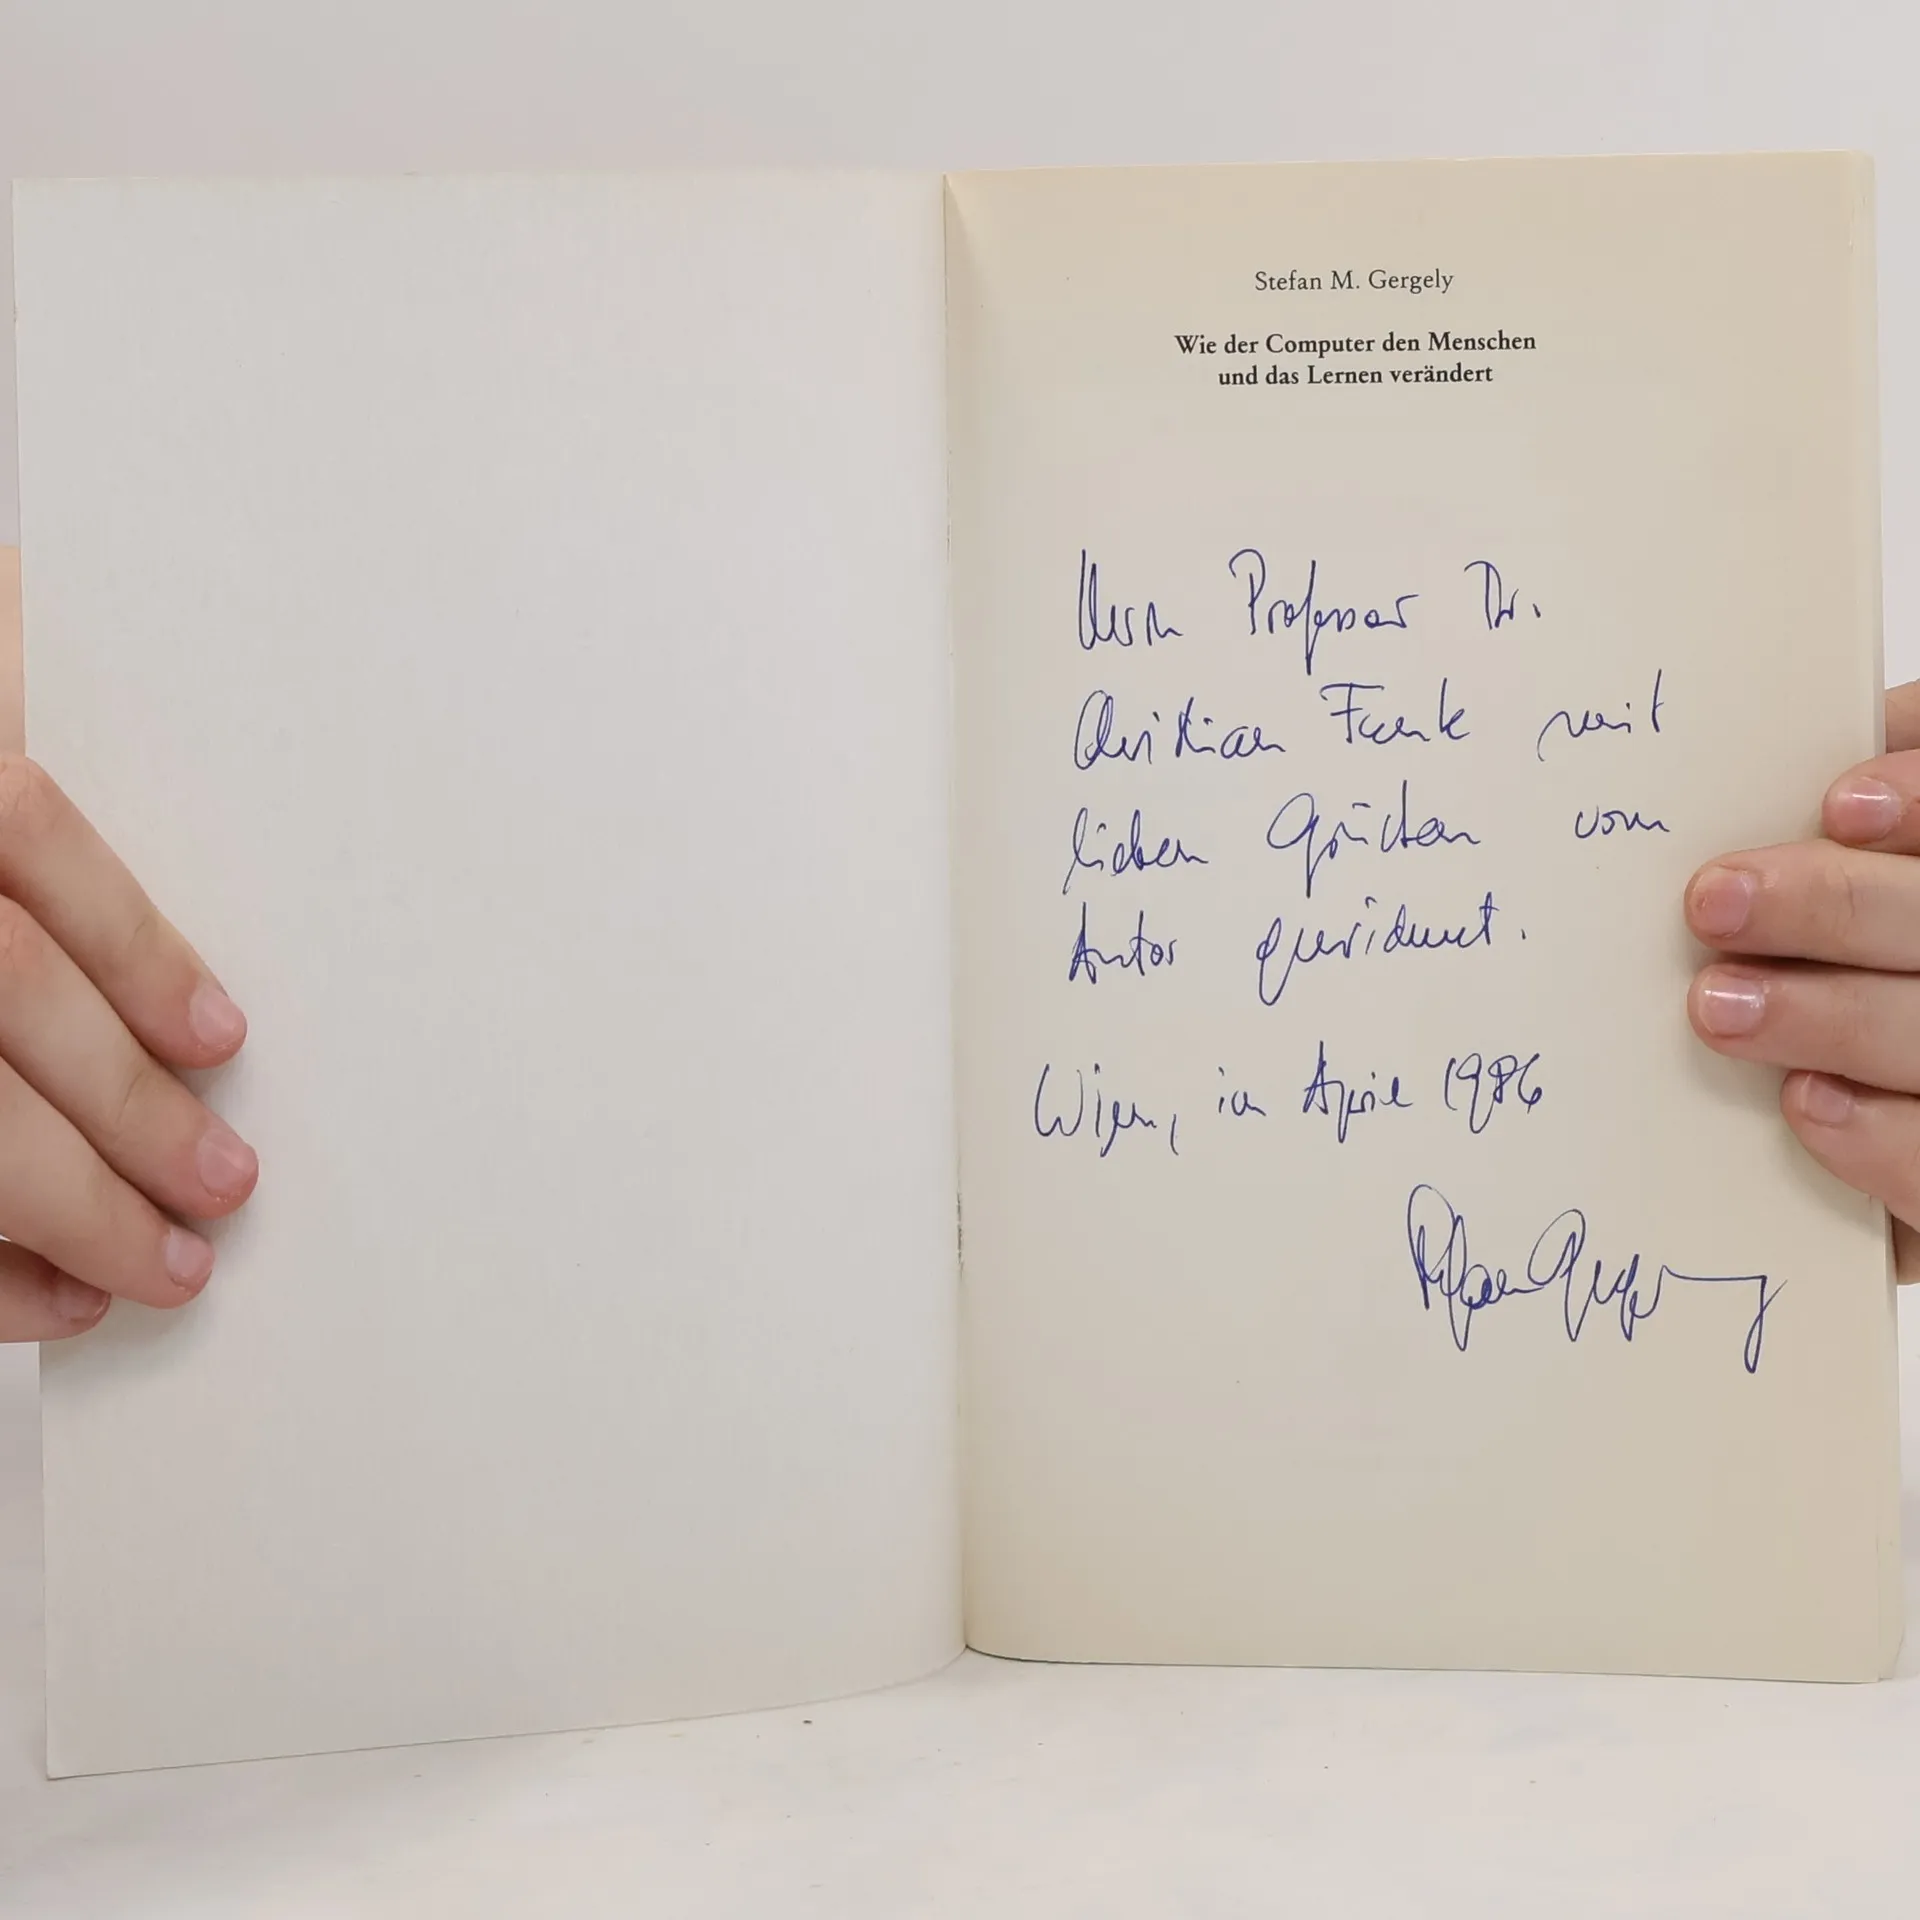 Stefan M. Gergely
Wie der Computer den Menschen
und das Lernen verändert
Herrn Professor Dr.
Christian Funk mit
lieben Grüßen vom
Autor gewidmet.
Wien, im April 1986
Stefan Gergely